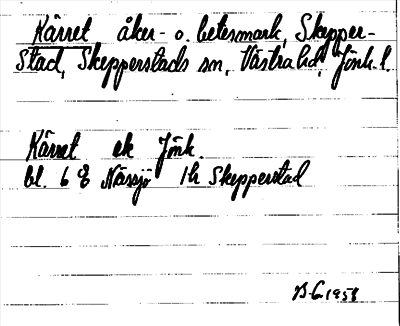 Kärret, åker- o. betesmark, Skepper-
stad, Skepperstads sn, Västra hd, Jönk. l.
Kärret ek Jönk.
bl. 6 g Nässjö 1h Skepperstad
B.G. 1958